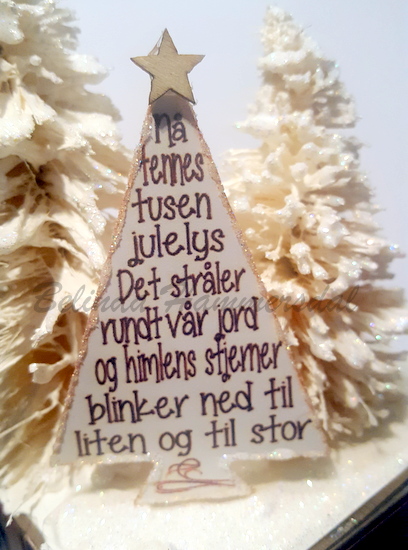 Nå
tennes
tusen
julelys
Det stråler
rundt vår jord
og himlens stjerner
blinker ned til
liten og til stor
Belinda Hammersdal